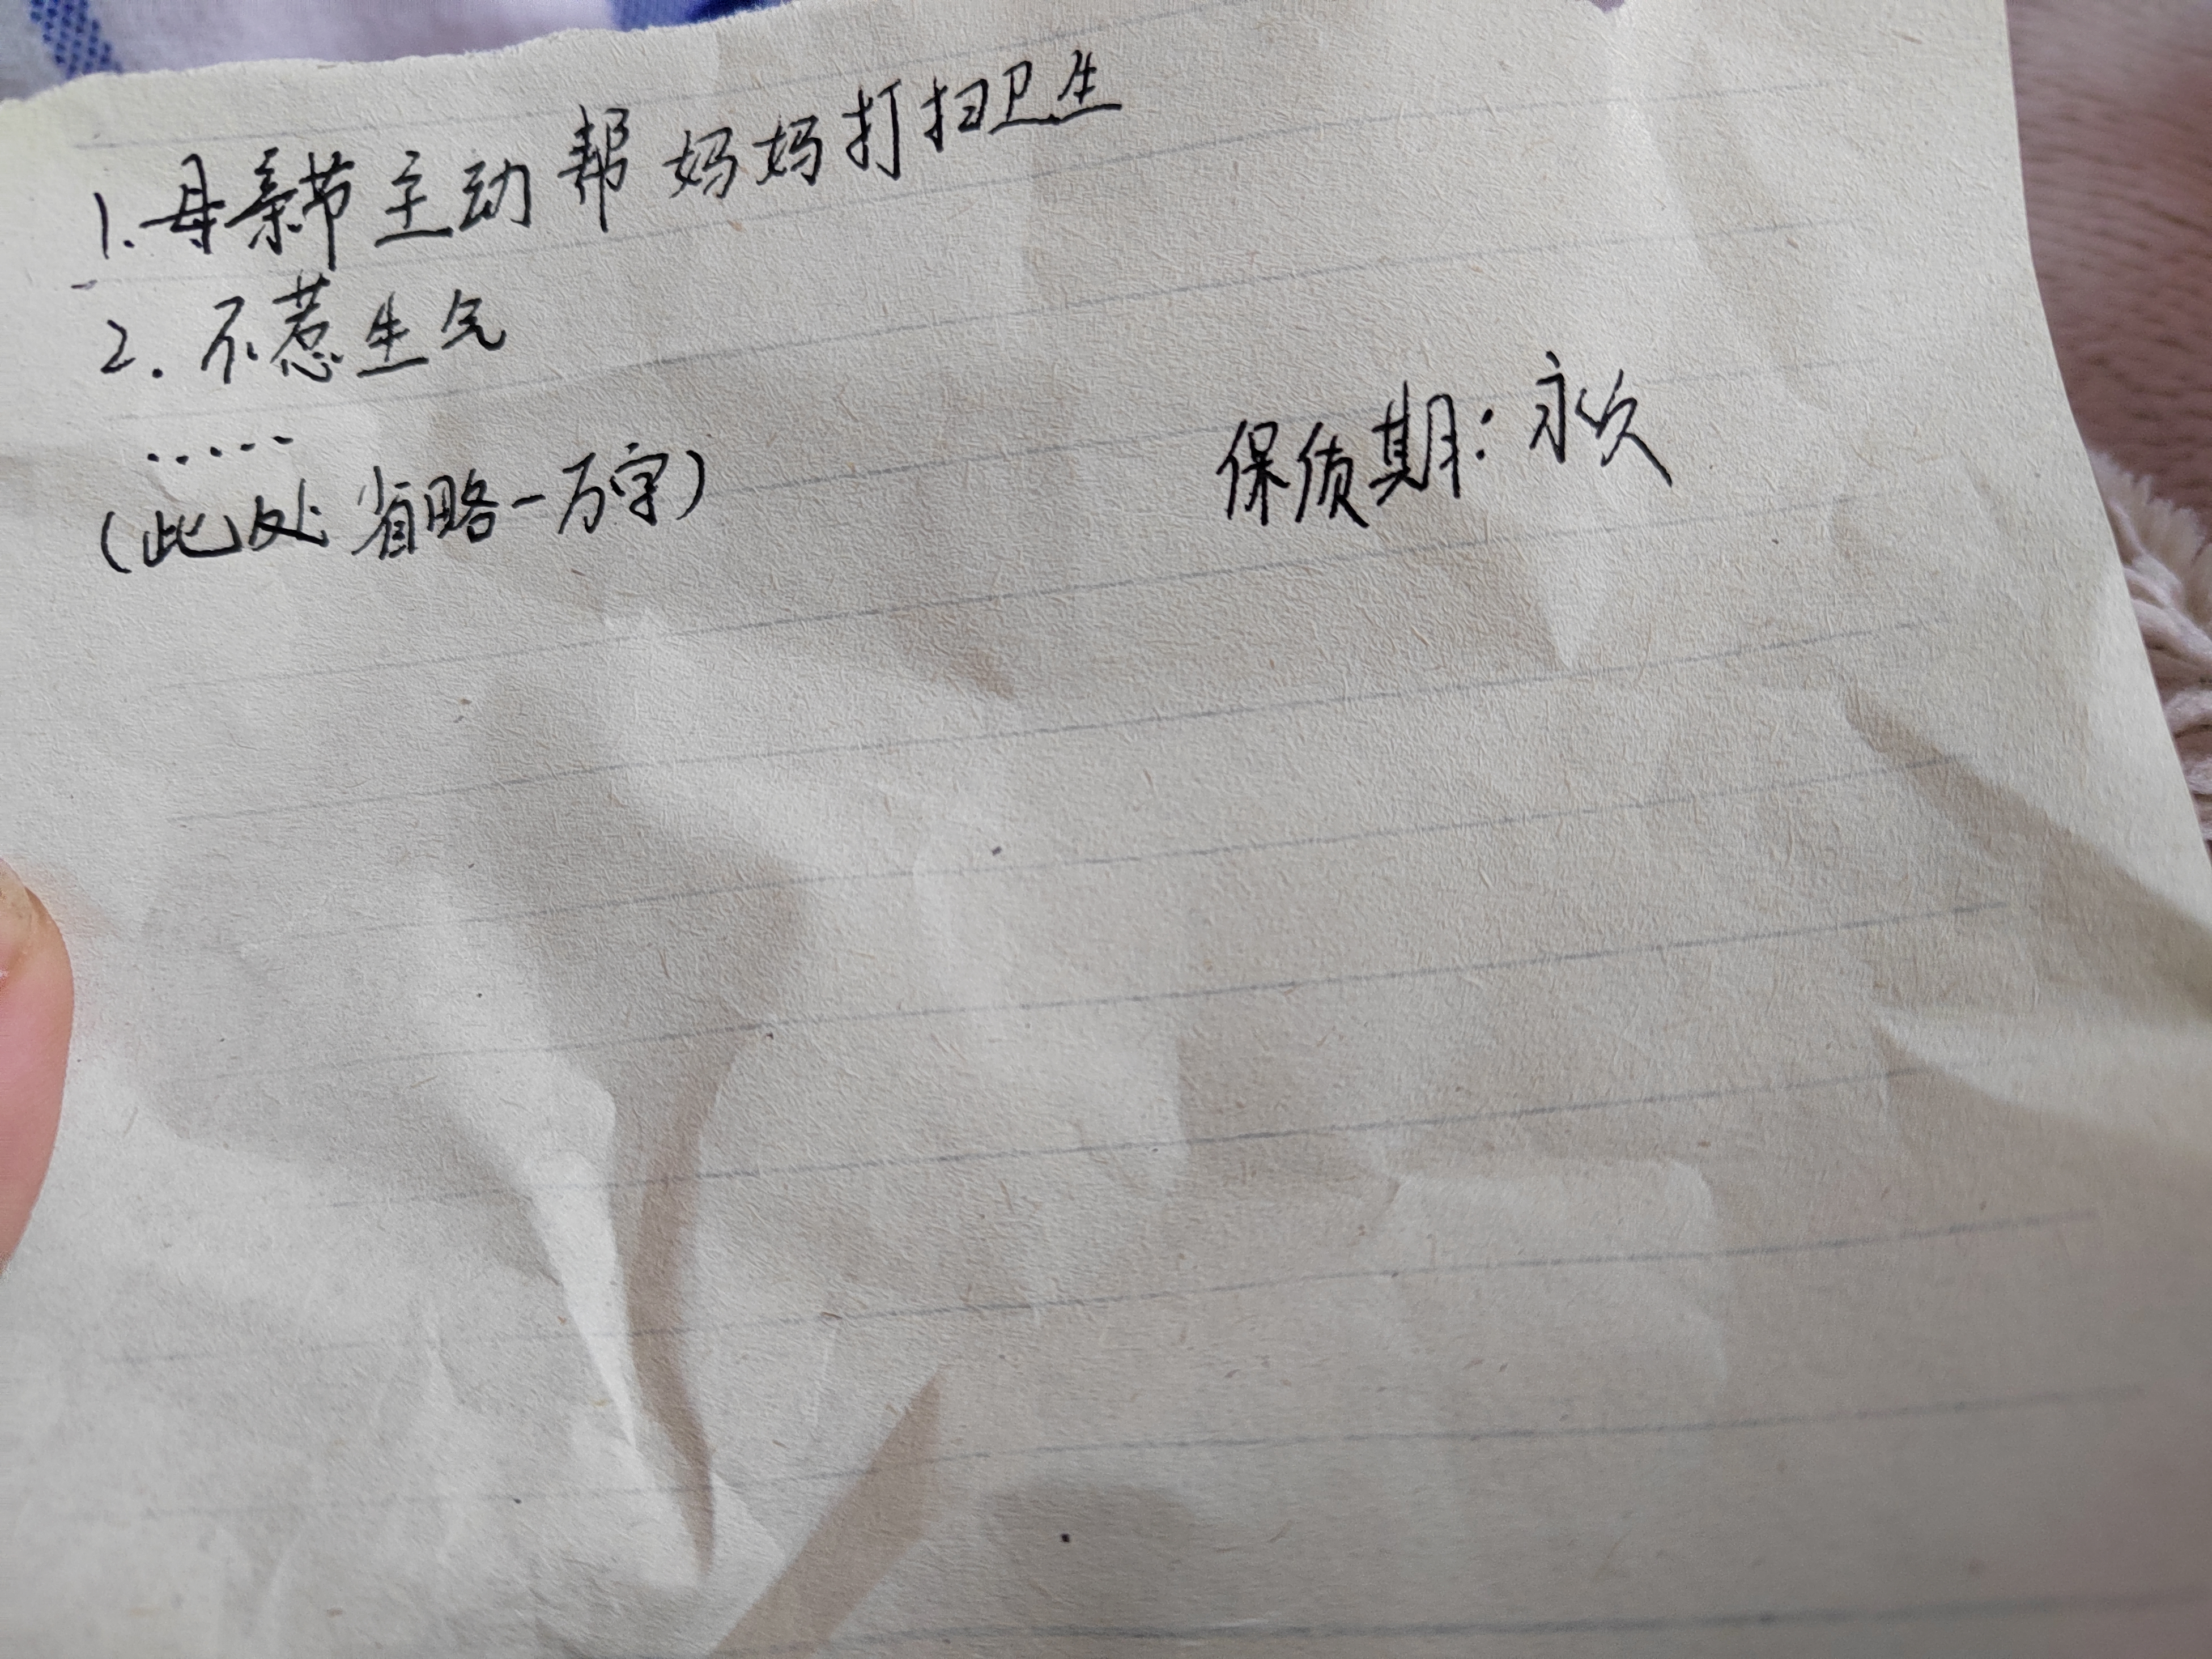 1.母亲节主动帮妈妈打扫卫生
2.不惹生气
.....
(此处省略一万字)
保质期:永久